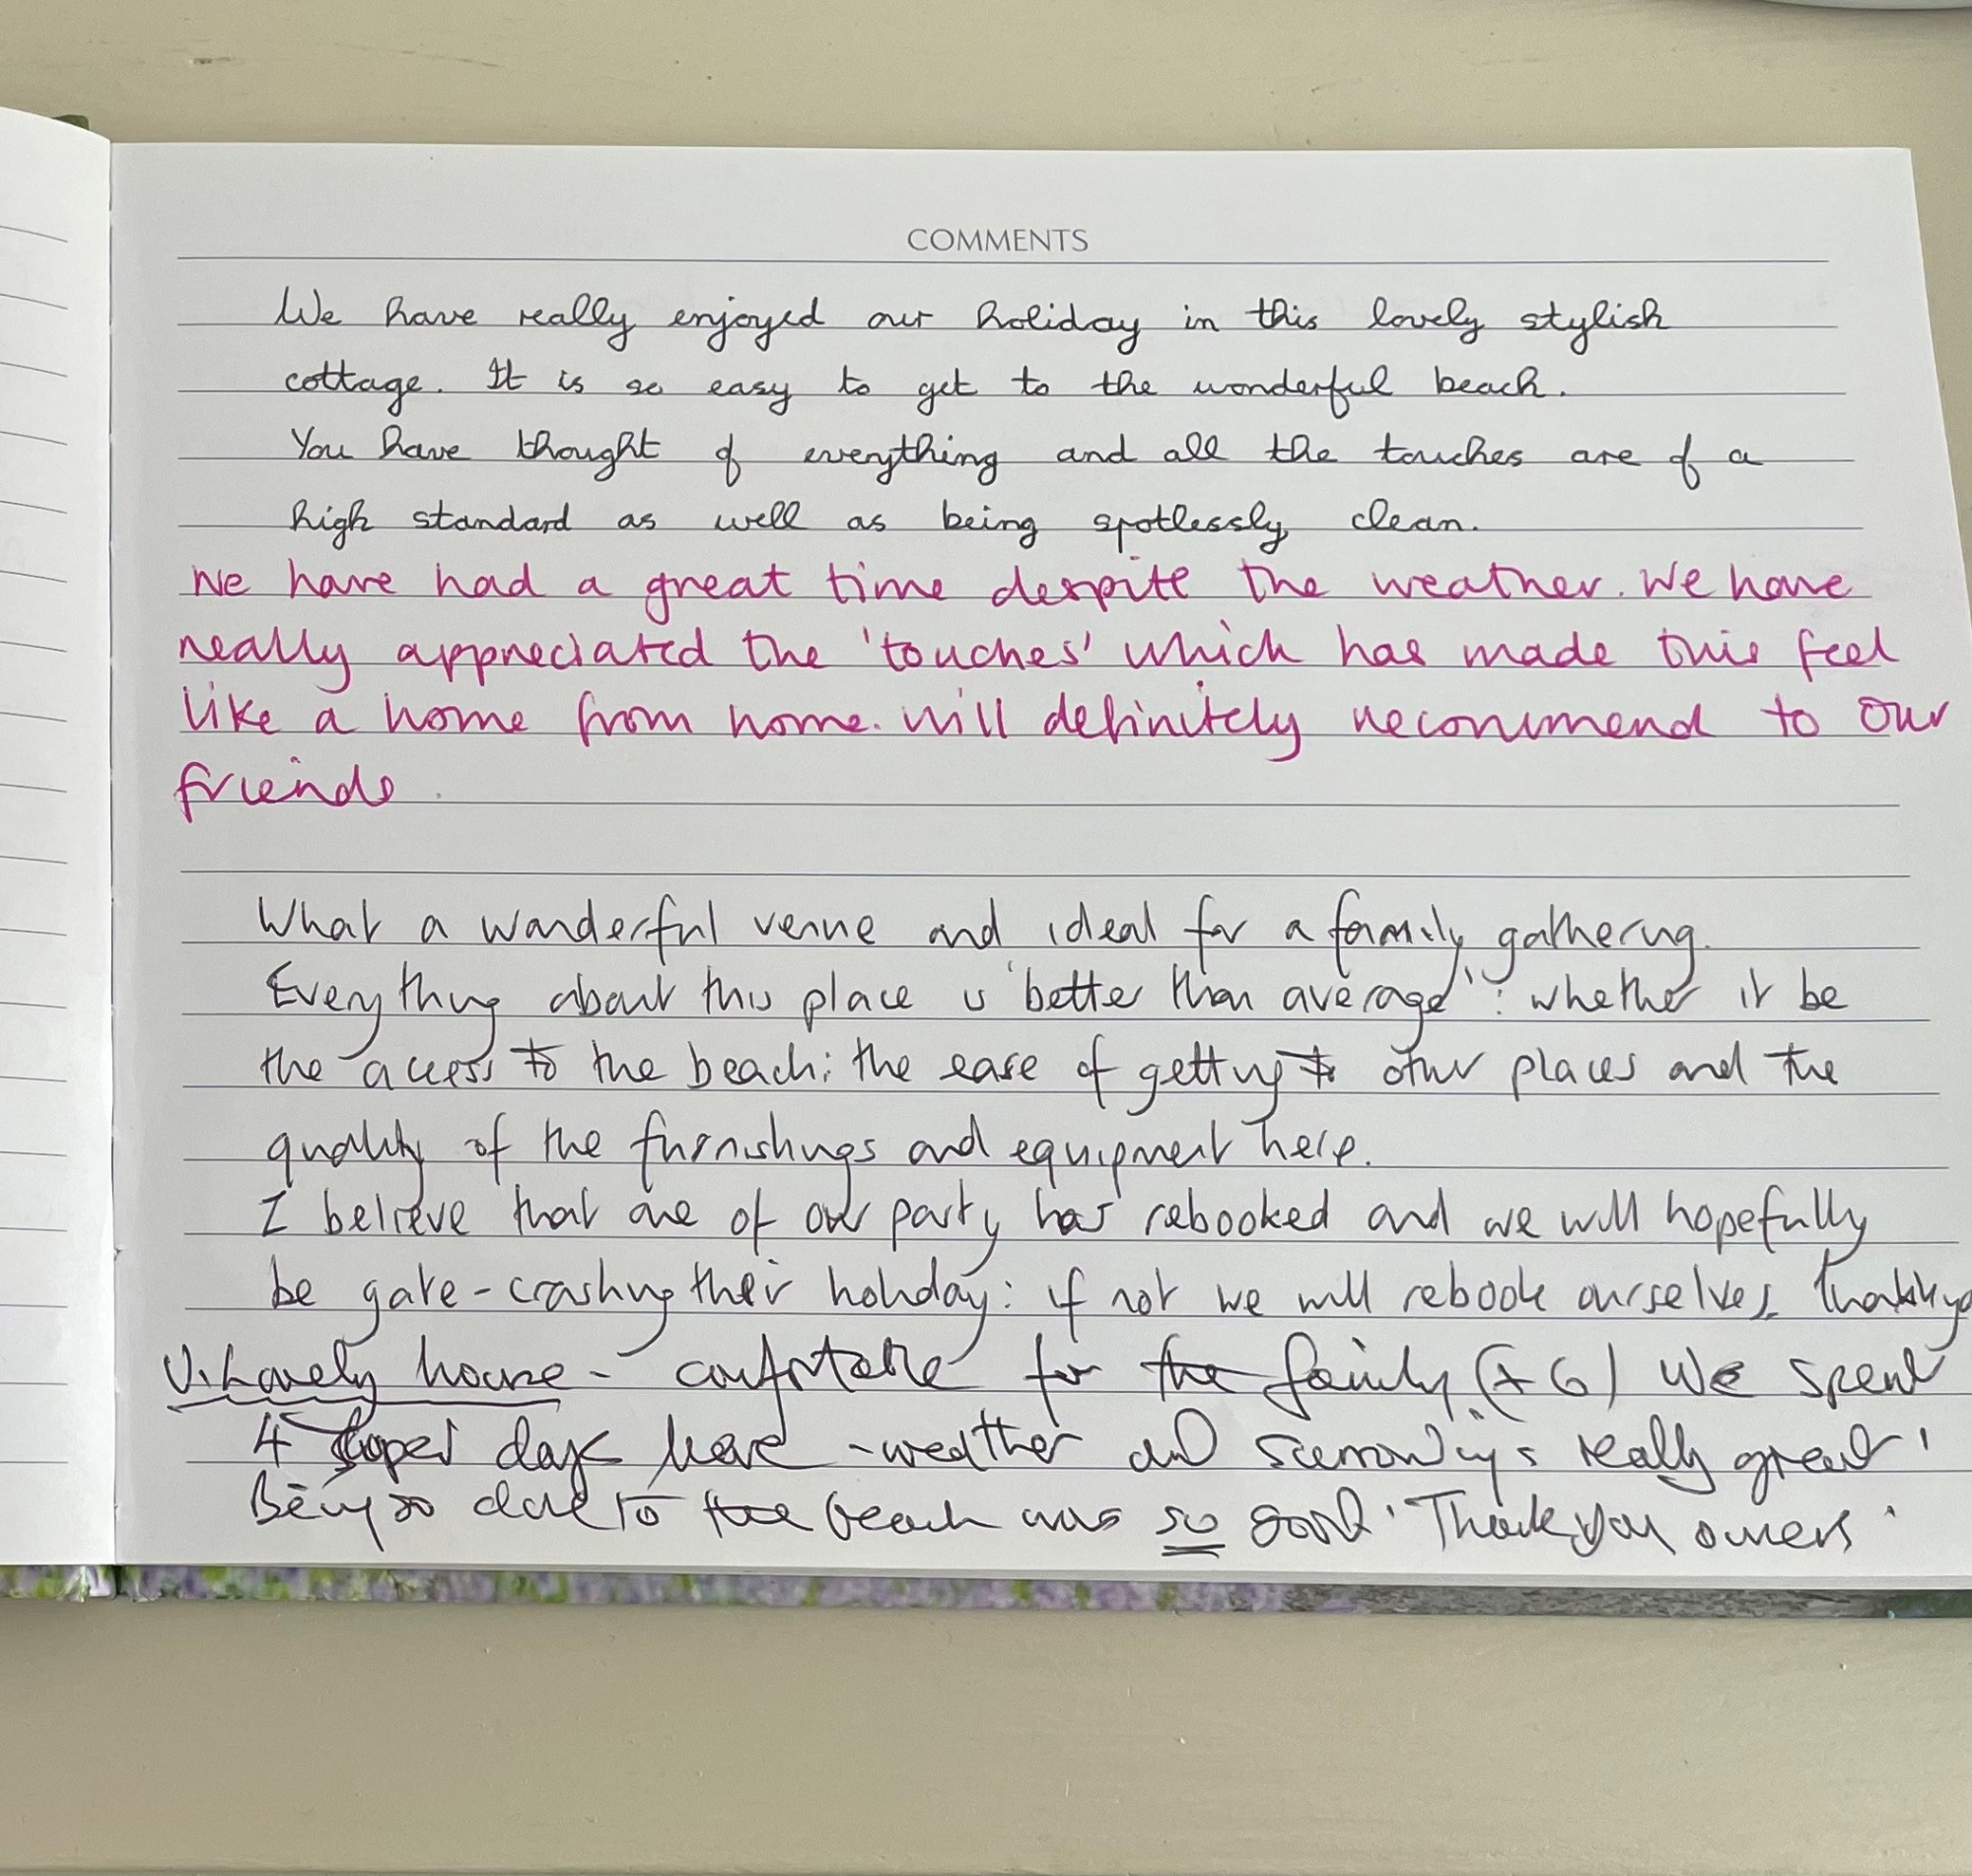 COMMENTS
We have really enjoyed our holiday in this lovely stylish
cottage. It is so easy to get to the wonderful beach.
You have thought of everything and all the touches are of a
high standard as well as being spotlessly clean.
We have had a great time despite the weather. We have
really appreciated the 'touches' which has made this feel
like a home from home. Will definitely recommend to our
friends.
What a wonderful venue and ideal for a family gathering.
Everything about this place is 'better than average': whether it be
the access to the beach; the ease of getting to other places and the
quality of the furnishings and equipment here.
I believe that one of our party has rebooked and we will hopefully
be gate-crashing their holiday: if not we will rebook ourselves.
V. Lovely house - comfortable for the family (+6) We spent
4 days here - weather and really great!
Being so close to the beach was so good. Thank you owners.